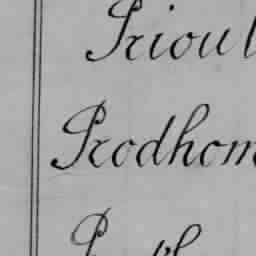 Prioul
Prodhom